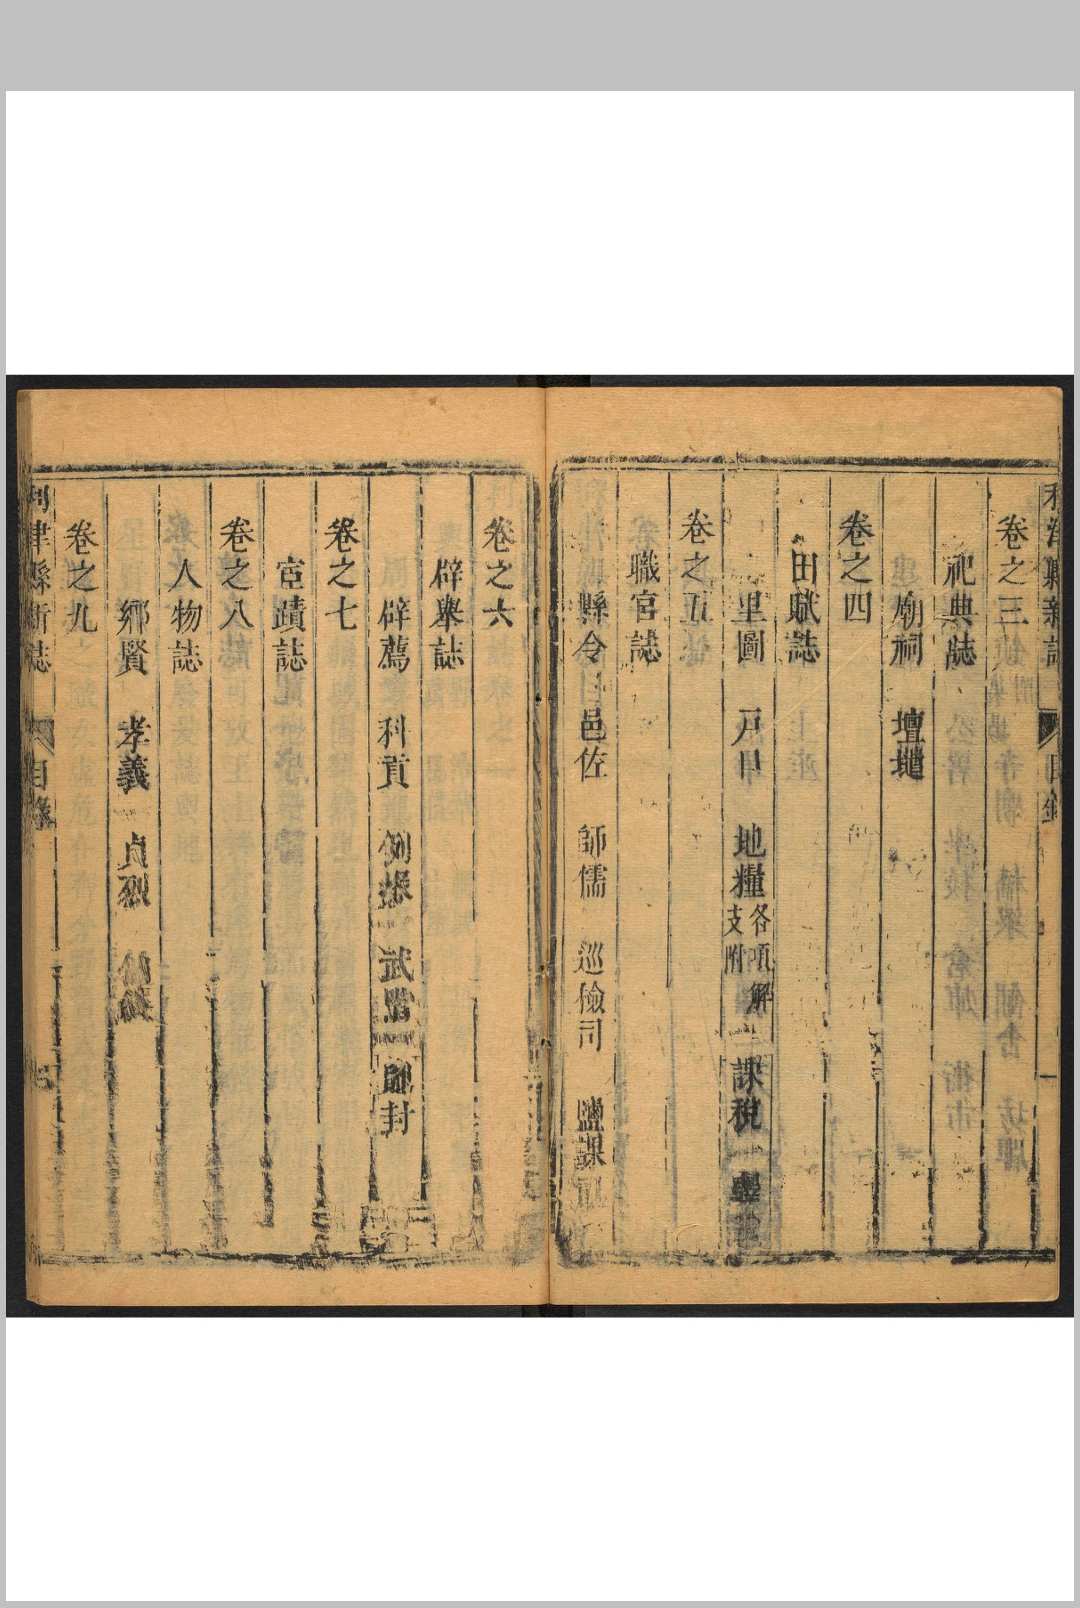 利津縣新誌 目錄 一
卷之三
祀典誌
廟祠 壇壝
卷之四
田賦誌
里圖 戶口 地糧各項解支附 課稅
卷之五
職官誌
縣令 邑佐 師儒 巡檢司 鹽課司
卷之六
辟舉誌
辟薦 科貢 例掾 武 封
卷之七
宦蹟誌
卷之八
人物誌
鄉賢 孝義 貞烈
卷之九
利津縣新誌 目錄